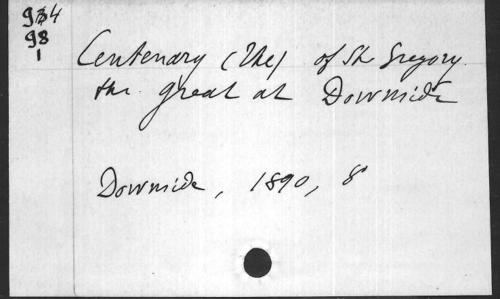 934
98
1
Centenary (The) of St Gregory
the great at Downside
Downside, 1890, 8º